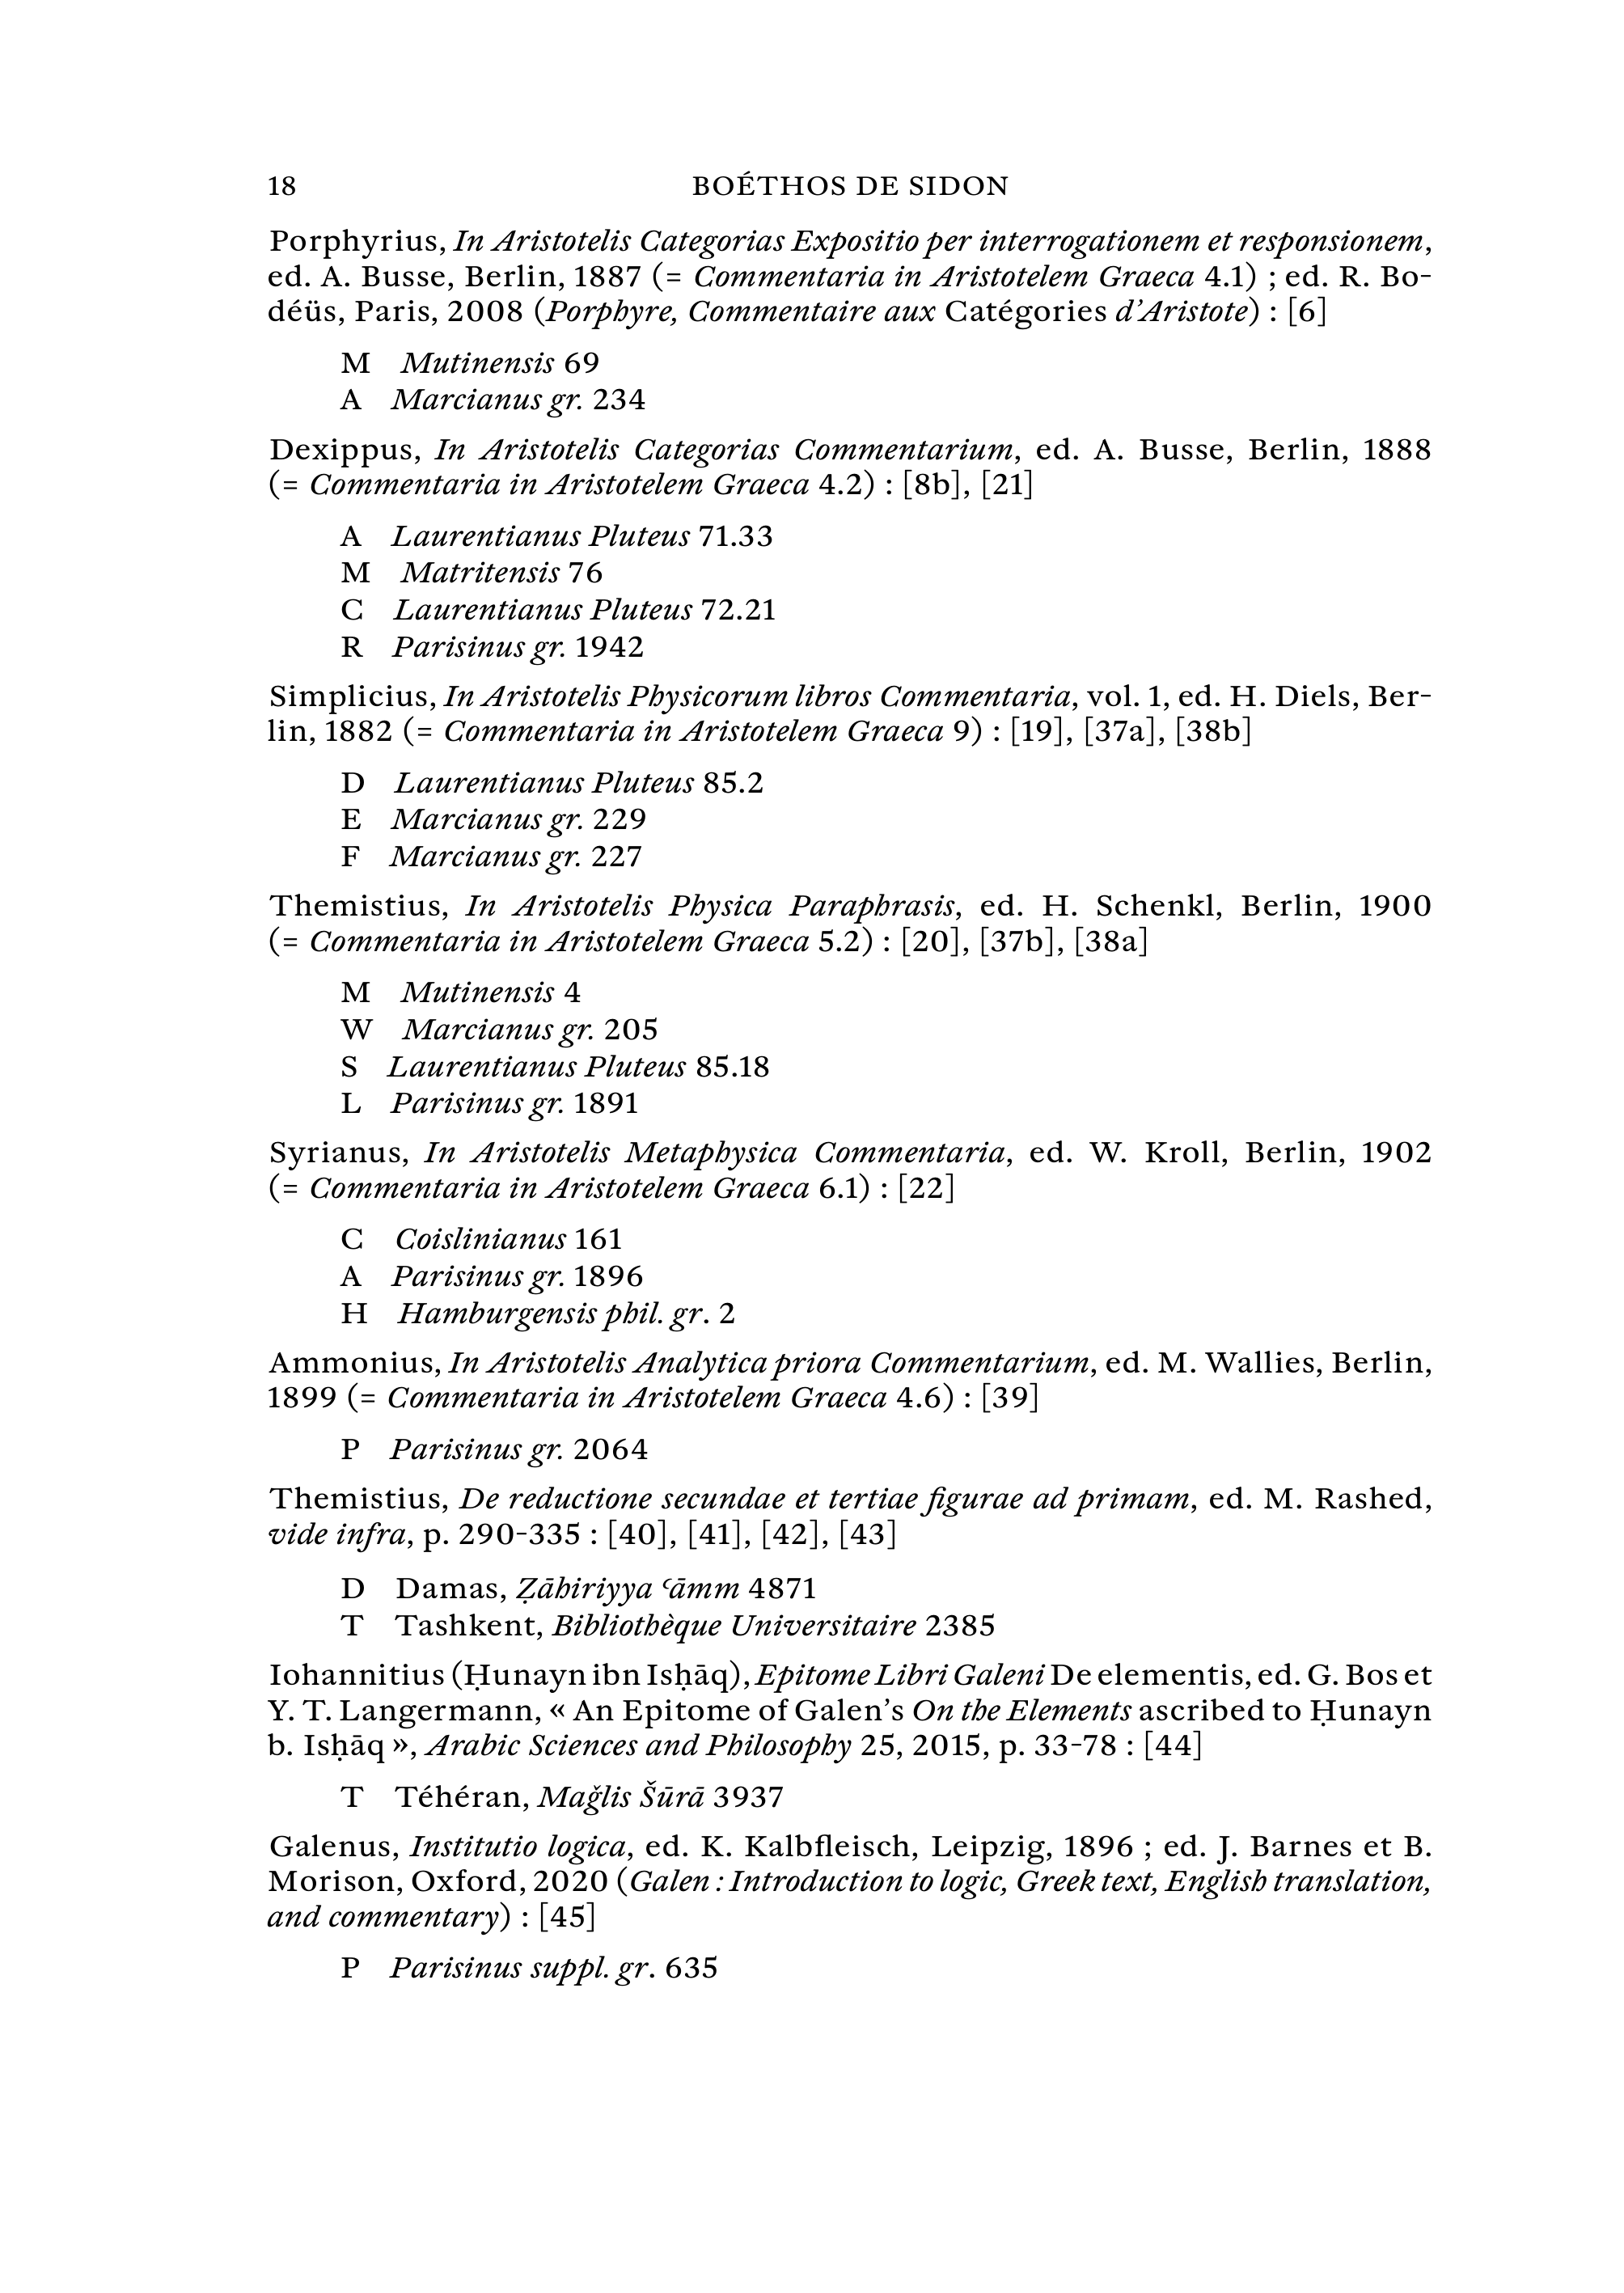 18 BOÉTHOS DE SIDON
Porphyrius, In Aristotelis Categorias Expositio per interrogationem et responsionem,
ed. A. Busse, Berlin, 1887 (= Commentaria in Aristotelem Graeca 4.1) ; ed. R. Bo-
déüs, Paris, 2008 (Porphyre, Commentaire aux Catégories d’Aristote) : [6]
M Mutinensis 69
A Marcianus gr. 234
Dexippus, In Aristotelis Categorias Commentarium, ed. A. Busse, Berlin, 1888
(= Commentaria in Aristotelem Graeca 4.2) : [8b], [21]
A Laurentianus Pluteus 71.33
M Matritensis 76
C Laurentianus Pluteus 72.21
R Parisinus gr. 1942
Simplicius, In Aristotelis Physicorum libros Commentaria, vol. 1, ed. H. Diels, Ber-
lin, 1882 (= Commentaria in Aristotelem Graeca 9) : [19], [37a], [38b]
D Laurentianus Pluteus 85.2
E Marcianus gr. 229
F Marcianus gr. 227
Themistius, In Aristotelis Physica Paraphrasis, ed. H. Schenkl, Berlin, 1900
(= Commentaria in Aristotelem Graeca 5.2) : [20], [37b], [38a]
M Mutinensis 4
W Marcianus gr. 205
S Laurentianus Pluteus 85.18
L Parisinus gr. 1891
Syrianus, In Aristotelis Metaphysica Commentaria, ed. W. Kroll, Berlin, 1902
(= Commentaria in Aristotelem Graeca 6.1) : [22]
C Coislinianus 161
A Parisinus gr. 1896
H Hamburgensis phil. gr. 2
Ammonius, In Aristotelis Analytica priora Commentarium, ed. M. Wallies, Berlin,
1899 (= Commentaria in Aristotelem Graeca 4.6) : [39]
P Parisinus gr. 2064
Themistius, De reductione secundae et tertiae figurae ad primam, ed. M. Rashed,
vide infra, p. 290-335 : [40], [41], [42], [43]
D Damas, Ẓāhiriyya ʿāmm 4871
T Tashkent, Bibliothèque Universitaire 2385
Iohannitius (Ḥunayn ibn Isḥāq), Epitome Libri Galeni De elementis, ed. G. Bos et
Y. T. Langermann, « An Epitome of Galen’s On the Elements ascribed to Ḥunayn
b. Isḥāq », Arabic Sciences and Philosophy 25, 2015, p. 33-78 : [44]
T Téhéran, Maǧlis Šūrā 3937
Galenus, Institutio logica, ed. K. Kalbfleisch, Leipzig, 1896 ; ed. J. Barnes et B.
Morison, Oxford, 2020 (Galen : Introduction to logic, Greek text, English translation,
and commentary) : [45]
P Parisinus suppl. gr. 635